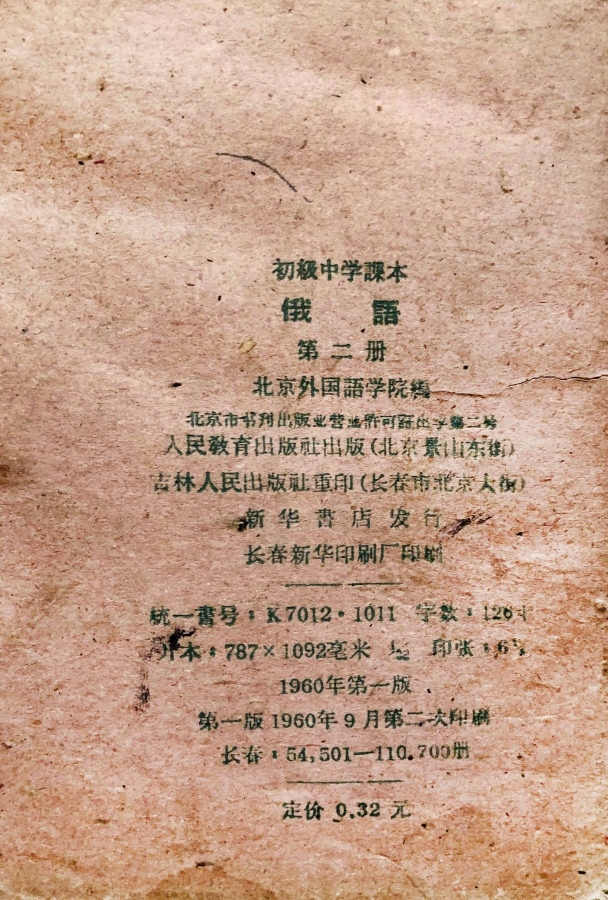 初級中学課本
俄語
第二册
北京外国語学院編
北京市书刊出版业营业許可証出字第二号
人民教育出版社出版(北京景山东街)
吉林人民出版社重印(长春市北京大街)
新华書店发行
长春新华印刷厂印刷
統一書号:K7012·1011 字数:126千
开本:787×1092毫米 印张:6
1960年第一版
第一版1960年9月第二次印刷
长春:54,501—110,700册
定价 0.32 元